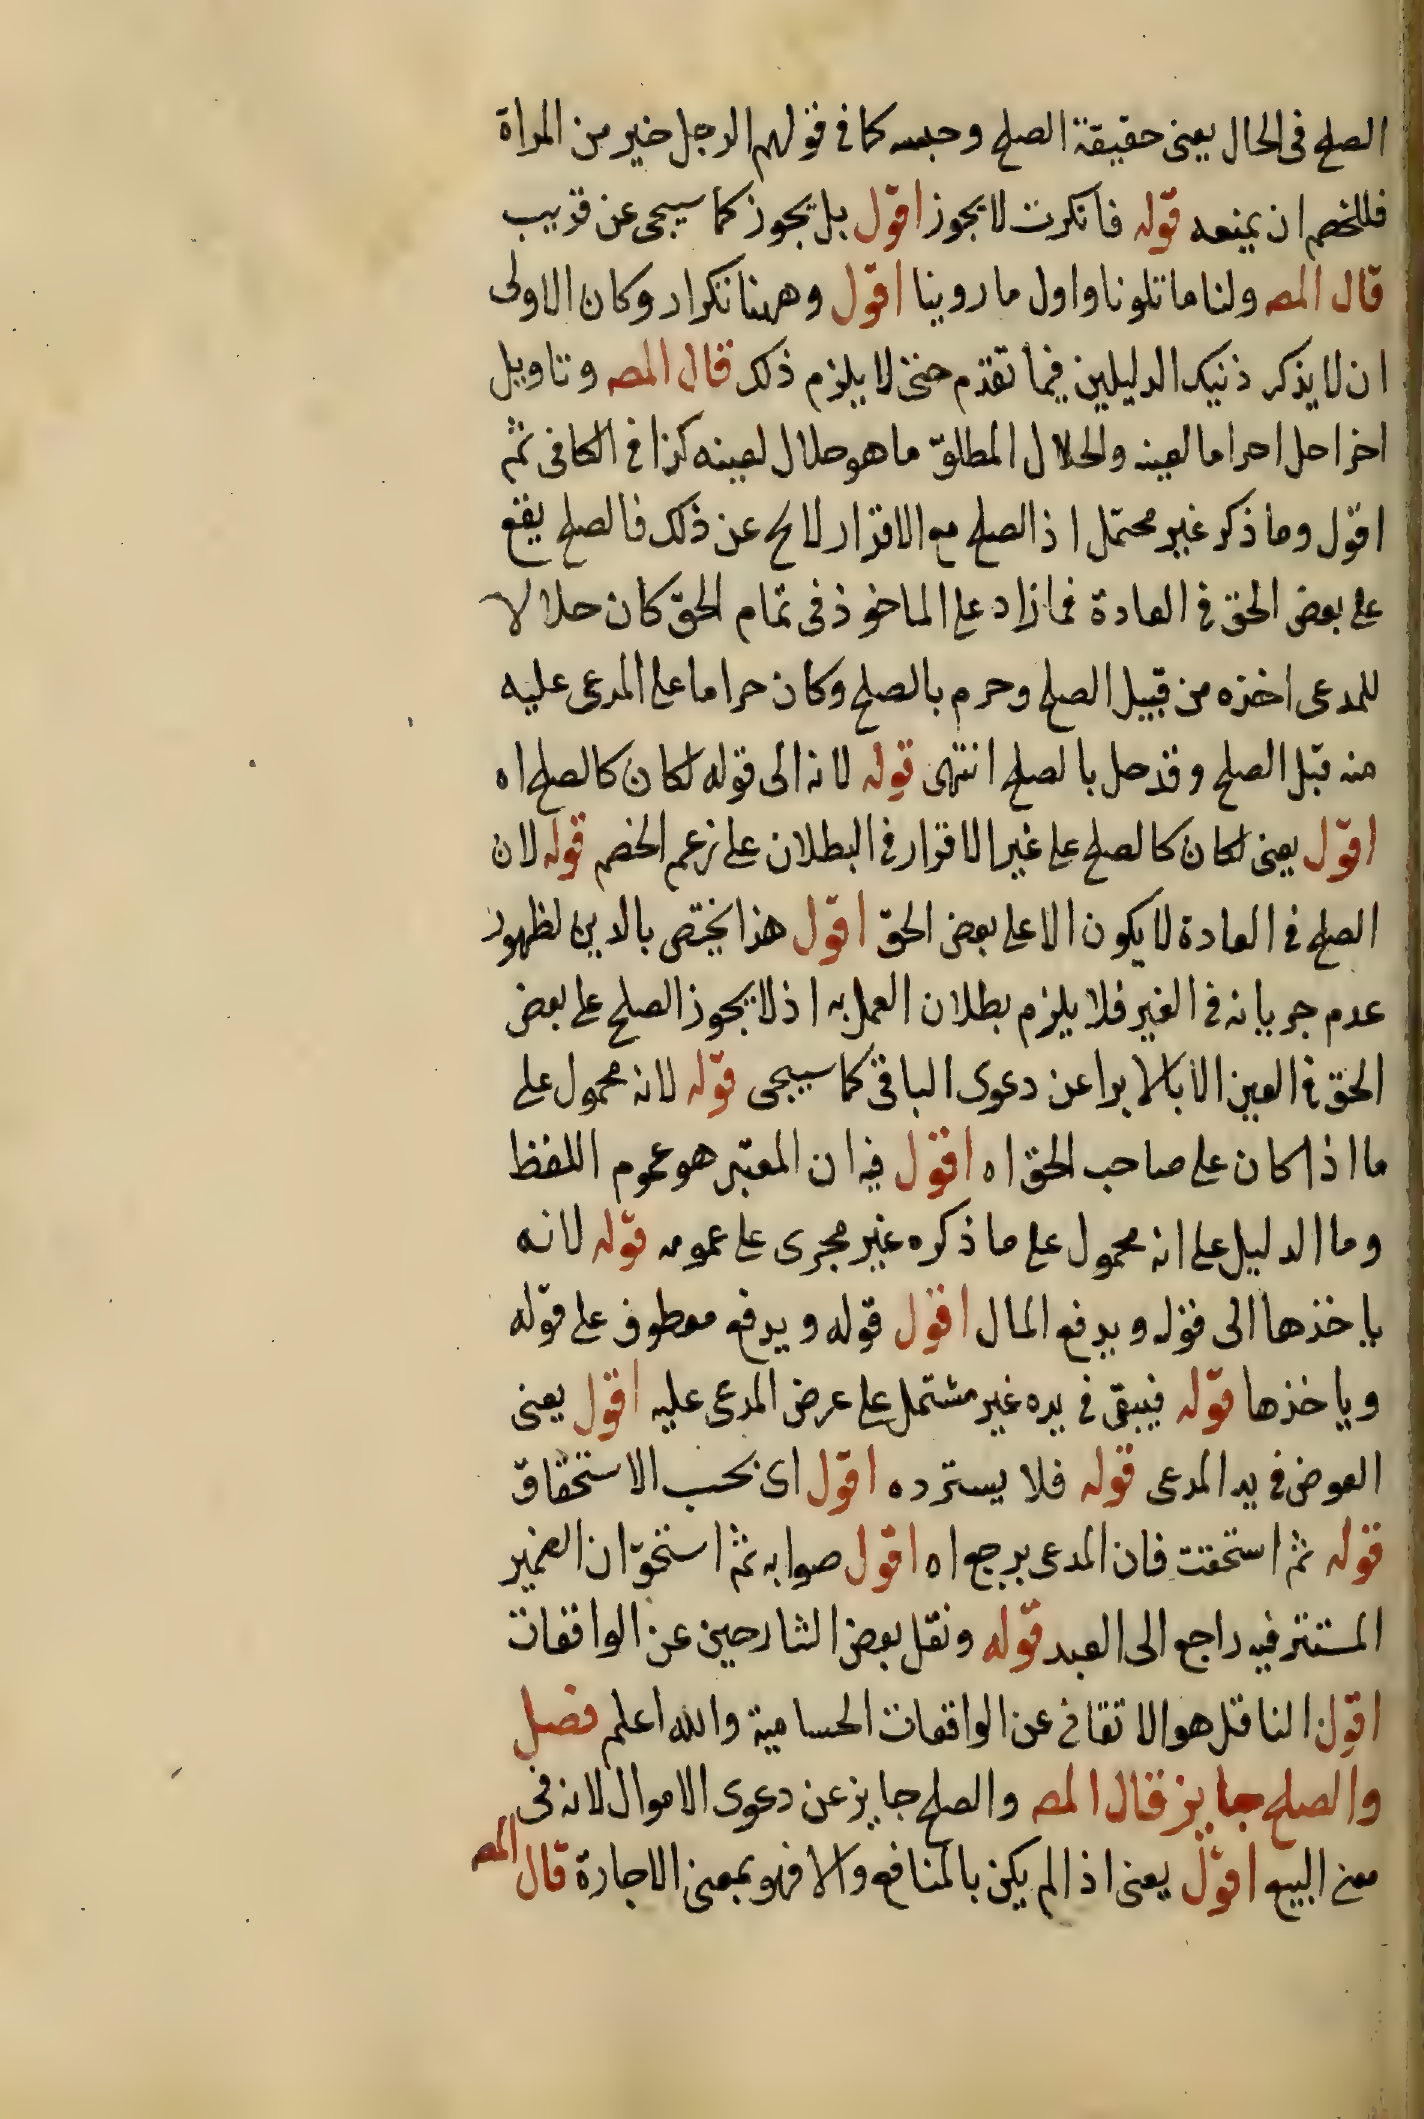 الصلح فى الحال يعنى حقيقة الصلح وجنسه كما فى قولهم الرجل خير من المراة
فللخصم ان يمنعه قوله فانكرت لا يجوز اقول بل يجوز كما سيجى عن قريب
قال المص ولنا ما تلونا واول ما روينا اقول وههنا تكرار وكان الاولى
ان لا يذكر ذنيك الدليلين فيما تقدم حتى لا يلزم ذلك قال المص وتاويل
اخر احل احراما لعينه والحلال المطلق ما هو حلال لعينه كذا فى الكافى ثم
اقول وما ذكر غير محتمل اذ الصلح مع الاقرار لا يخ عن ذلك فالصلح يقع
على بعض الحق فى العادة فما زاد على الماخوذ فى تمام الحق كان حلالا
للمدعى اخذه من قبيل الصلح وحرم بالصلح وكان حراما على المدعى عليه
منه قبل الصلح وقد حل بالصلح انتهى قوله لانه الى قوله لكان كالصلح اه
اقول يعنى لكان كالصلح على غير الاقرار فى البطلان على زعم الخصم قوله لان
الصلح فى العادة لا يكون الا على بعض الحق اقول هذا يختص بالدين لظهور
عدم جريانه فى الغير فلا يلزم بطلان العمل به اذ لا يجوز الصلح على بعض
الحق فى العين الا بالابرا عن دعوى الباقى كما سيجى قوله لانه محمول على
ما اذا كان على صاحب الحق اه اقول فيه ان المعتبر هو عموم اللفظ
وما الدليل على انه محمول على ما ذكره غير مجرى على عمومه قوله لانه
ياخذها الى قوله ويدفع المال اقول قوله ويدفع معطوف على قوله
وياخذها قوله فيبقى فى يده غير مشتمل على عرض المدعى عليه اقول يعنى
العوض فى يد المدعى قوله فلا يسترده اقول اى بحسب الاستحقاق
قوله ثم استحقت فان المدعى يرجع اه اقول صوابه ثم استحق ان الضمير
المستتر فيه راجع الى العبد قوله ونقل بعض الشارحين عن الواقعات
اقول الناقل هو الاتقانى عن الواقعات الحسامية والله اعلم فصل
والصلح جايز قال المص والصلح جايز عن دعوى الاموال لانه فى
معنى البيع اقول يعنى اذا لم يكن بالمنافع والا فهو بمعنى الاجارة قال المص